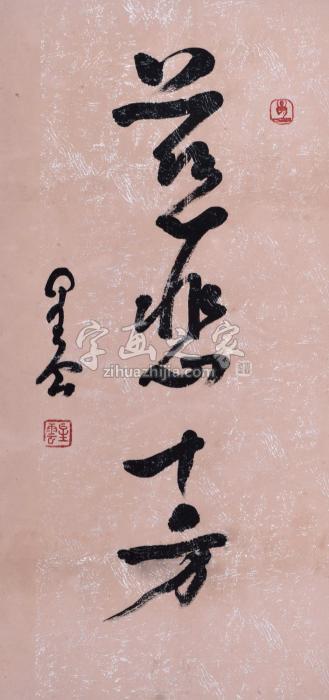 慈悲十方
星云
星雲
字画之家
zihuazhijia.com